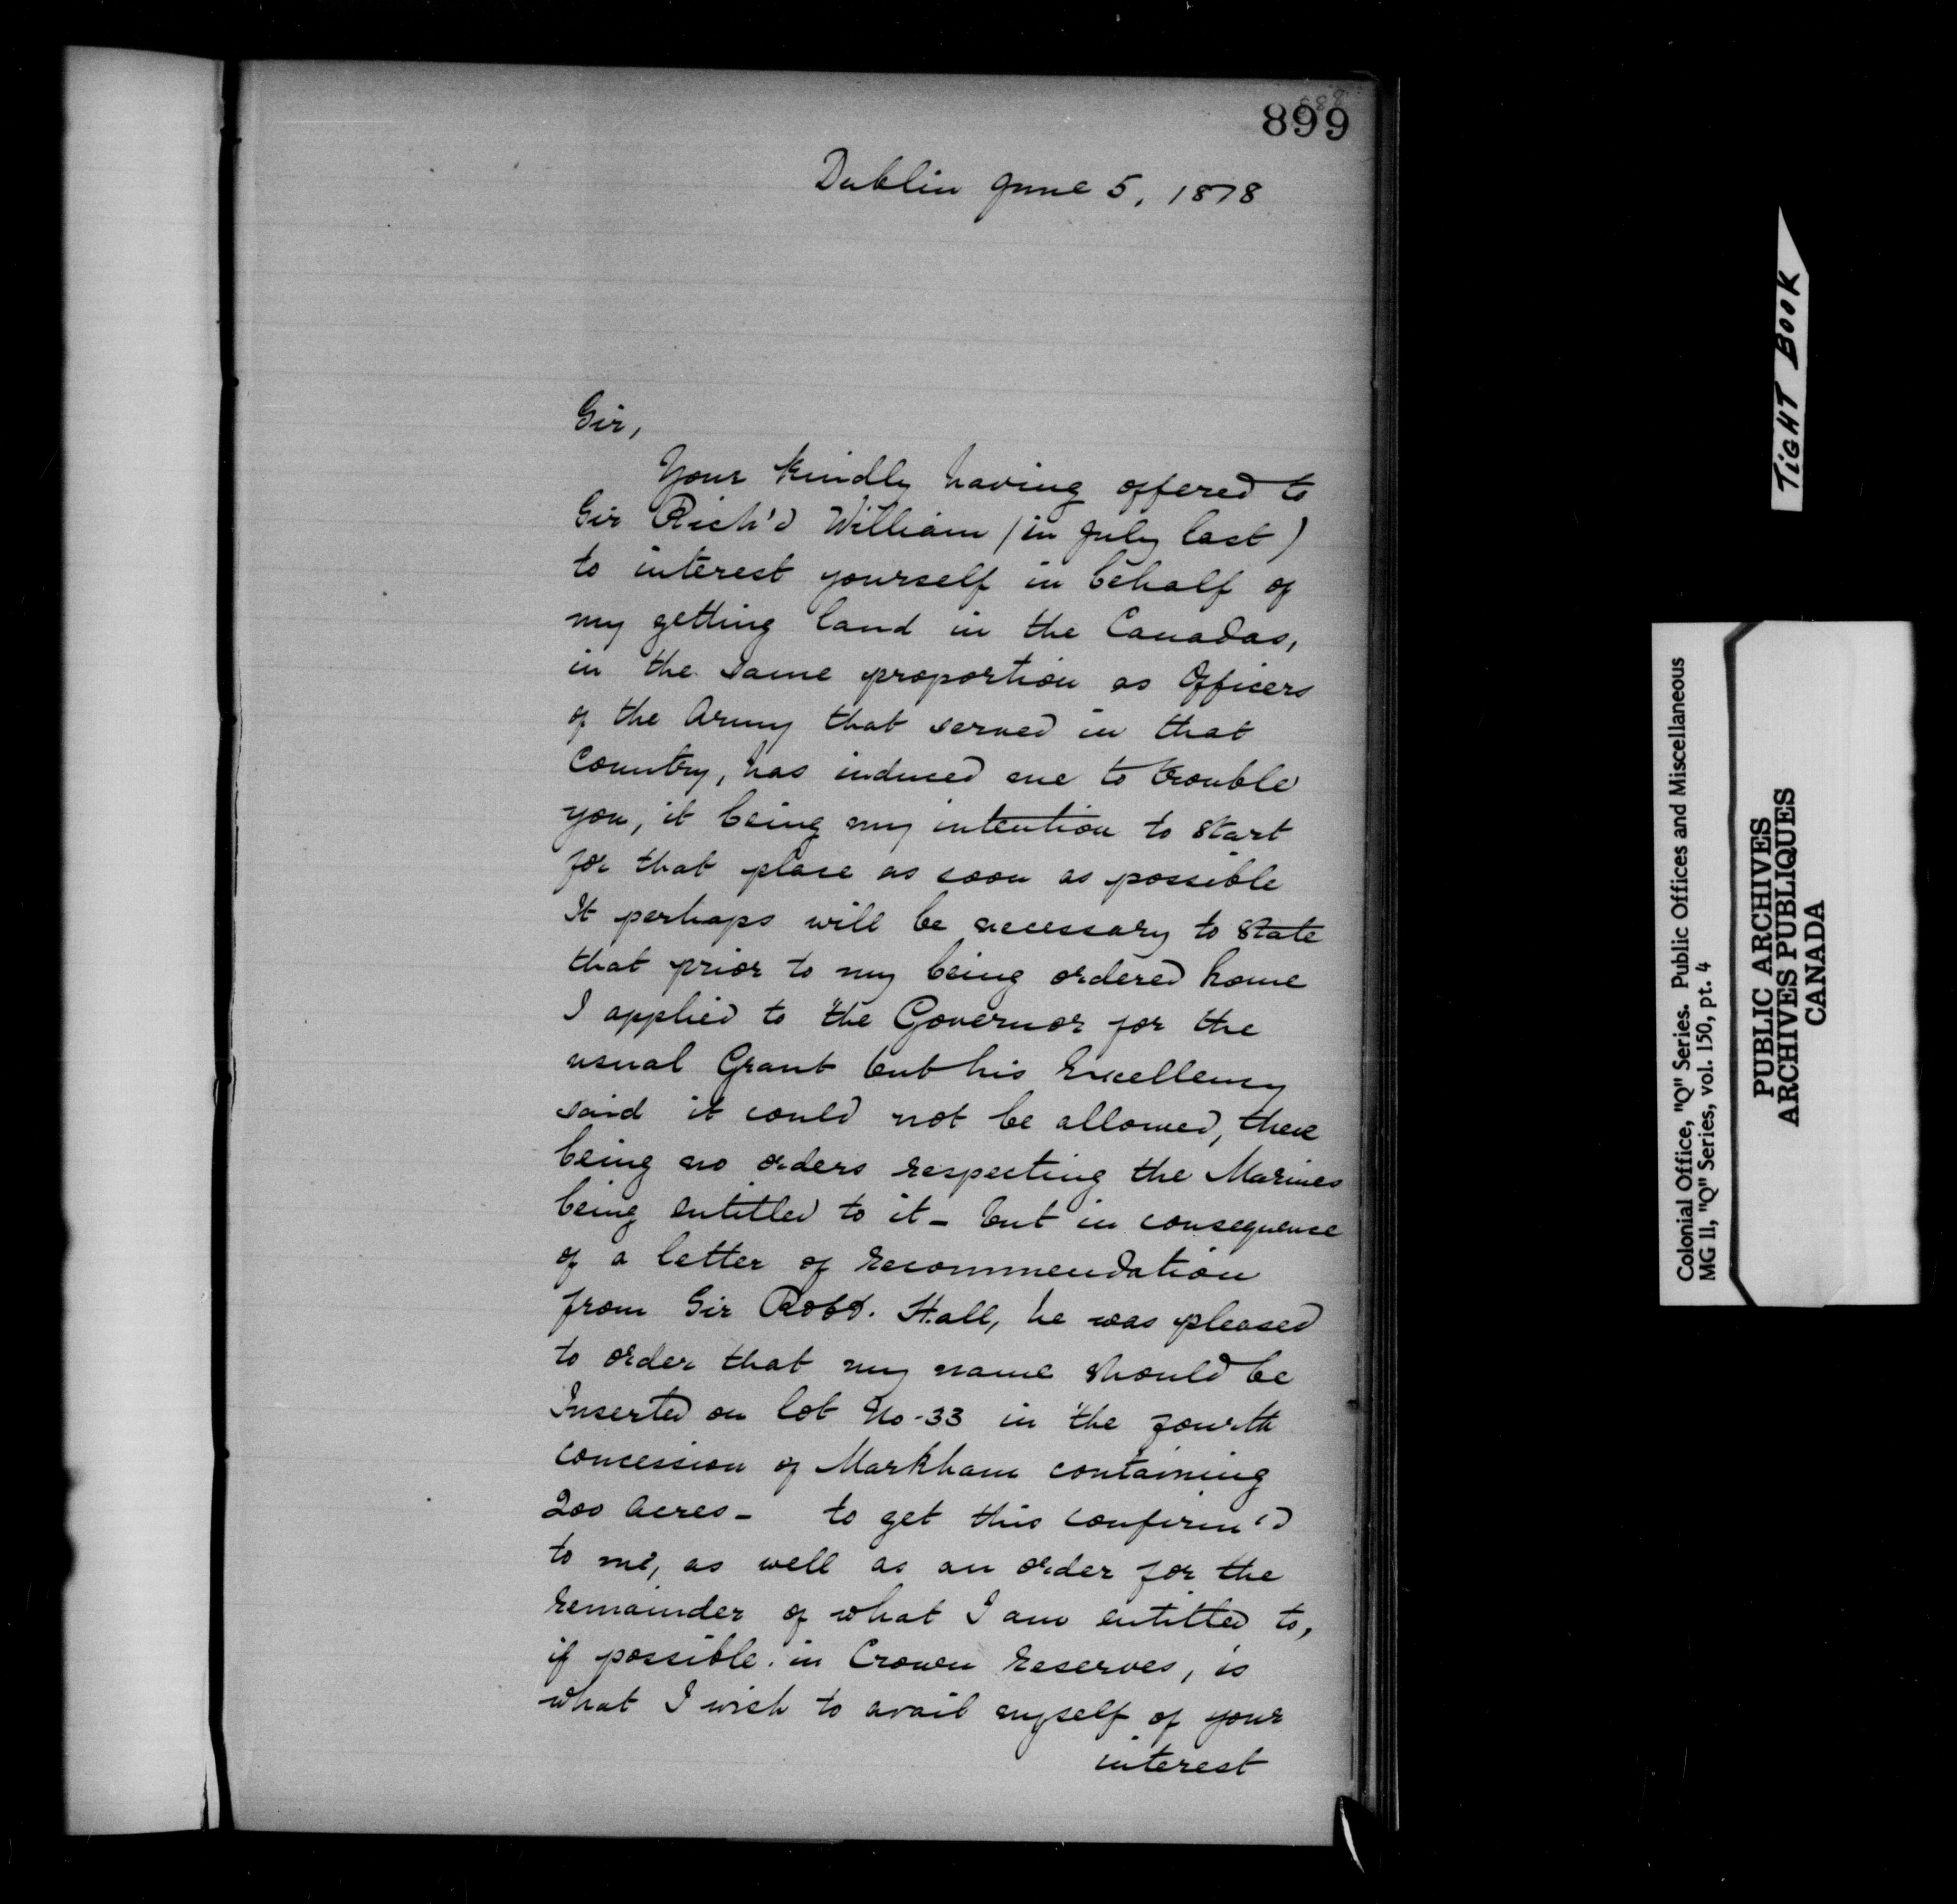 888
899
Dublin June 5, 1878
Sir,
Your kindly having offered to
Sir Rich'd William (in July last)
to interest yourself in behalf of
my getting land in the Canadas,
in the same proportion as Officers
of the Army that served in that
Country, has induced me to trouble
you, it being my intention to start
for that place as soon as possible
It perhaps will be necessary to state
that prior to my being ordered home
I applied to the Governor for the
usual Grant but his Excellency
said it could not be allowed, there
being no orders respecting the Marines
being entitled to it - but in consequence
of a letter of recommendation
from Sir Robt. Hall, he was pleased
to order that my name should be
Inserted on lot No-33 in the fourth
concession of Markham containing
200 acres - to get this confirm'd
to me, as well as an order for the
remainder of what I am entitled to,
if possible in Crown reserves, is
what I wish to avail myself of your
interest
TIGHT BOOK
Colonial Office, "Q" Series. Public Offices and Miscellaneous
MG 11, "Q" Series, vol. 150, pt. 4
PUBLIC ARCHIVES
ARCHIVES PUBLIQUES
CANADA